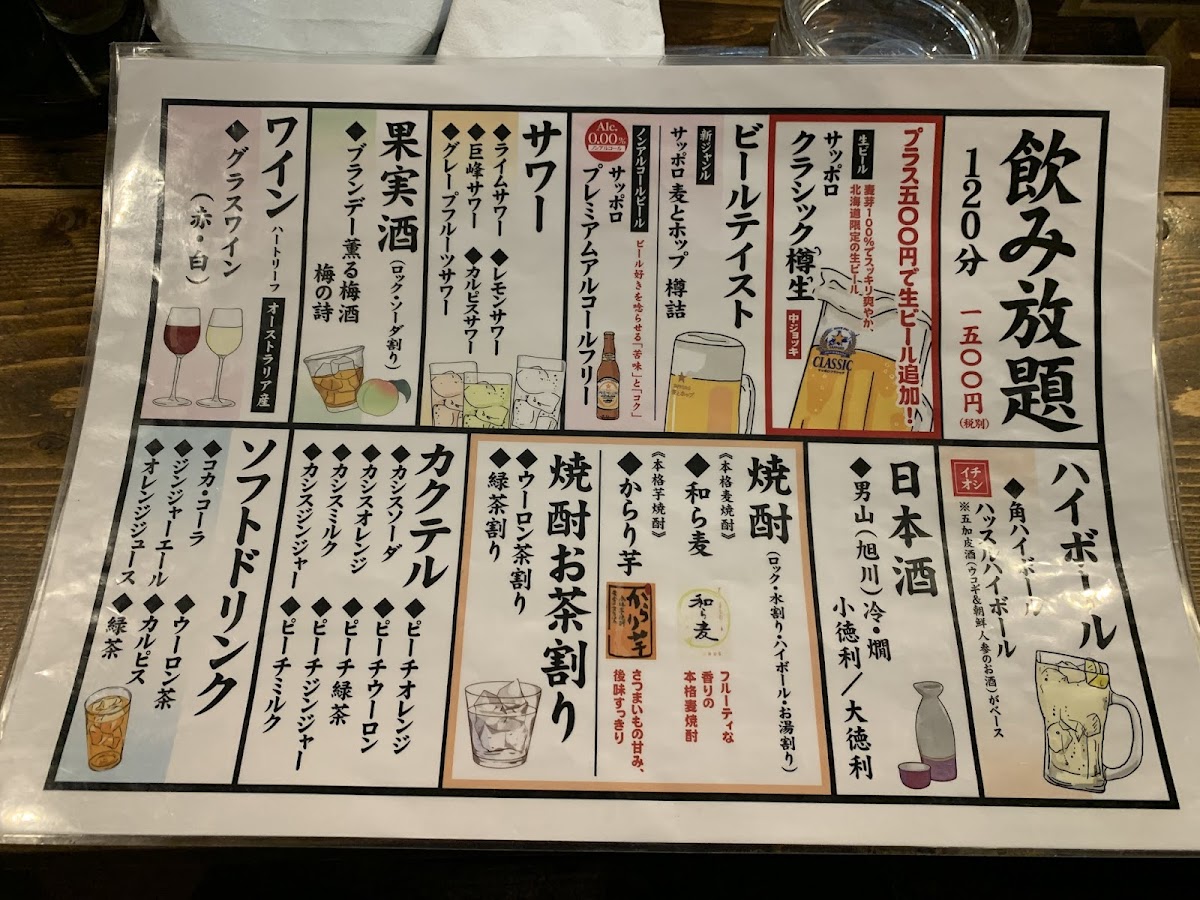 飲み放題
120分
一五〇〇円
(税別)
プラス五〇〇円で生ビール追加！
生ビール
麦芽100%でスッキリ爽やか、
北海道限定の生ビール。
サッポロ
クラシック樽生
中ジョッキ
CLASSIC
ビールテイスト
新ジャンル
サッポロ麦とホップ 樽詰
ノンアルコールビール
ビール好きを唸らせる「苦味」と「コク」
Alc.
0.00%
サッポロ
プレミアムアルコールフリー
サワー
◆ライムサワー ◆レモンサワー
◆巨峰サワー ◆カルピスサワー
◆グレープフルーツサワー
果実酒
(ロック・ソーダ割り)
◆ブランデー薫る梅酒
梅の詩
ワイン
ハートリーフ
オーストラリア産
◆グラスワイン
(赤・白)
ハイボール
◆角ハイボール
イチオシ
ハッスルハイボール
※五加皮酒(ウコギ&朝鮮人参のお酒)がベース
日本酒
◆男山(旭川)冷・燗
小徳利/大徳利
焼酎
(ロック・水割り・ハイボール・お湯割り)
《本格麦焼酎》
◆和ら麦
和ら麦
フルーティな
香りの
本格麦焼酎
《本格芋焼酎》
◆からり芋
からり芋
さつまいもの甘み、
後味すっきり
焼酎お茶割り
◆ウーロン茶割り
◆緑茶割り
カクテル
◆カシスソーダ ◆ピーチオレンジ
◆カシスオレンジ ◆ピーチウーロン
◆カシスミルク ◆ピーチ緑茶
◆カシスジンジャー ◆ピーチジンジャー
◆ピーチミルク
ソフトドリンク
◆コカ・コーラ ◆ウーロン茶
◆ジンジャーエール ◆カルピス
◆オレンジジュース ◆緑茶